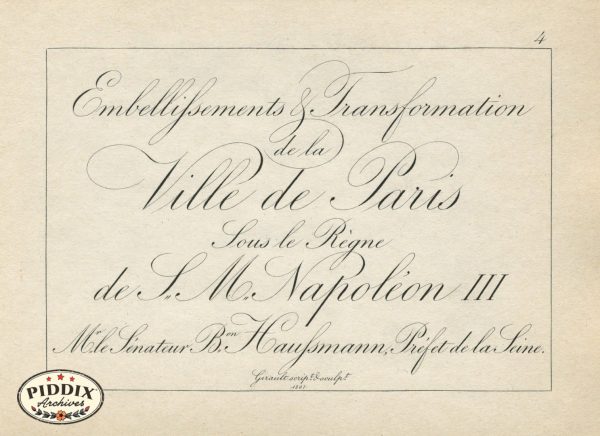 4
Embellissements & Transformation
de la
Ville de Paris
Sous le Règne
de S. M. Napoléon III
Mr. le Sénateur Bon. Haussmann, Préfet de la Seine.
Girault script. & sculpt.
PIDDIX
Archives